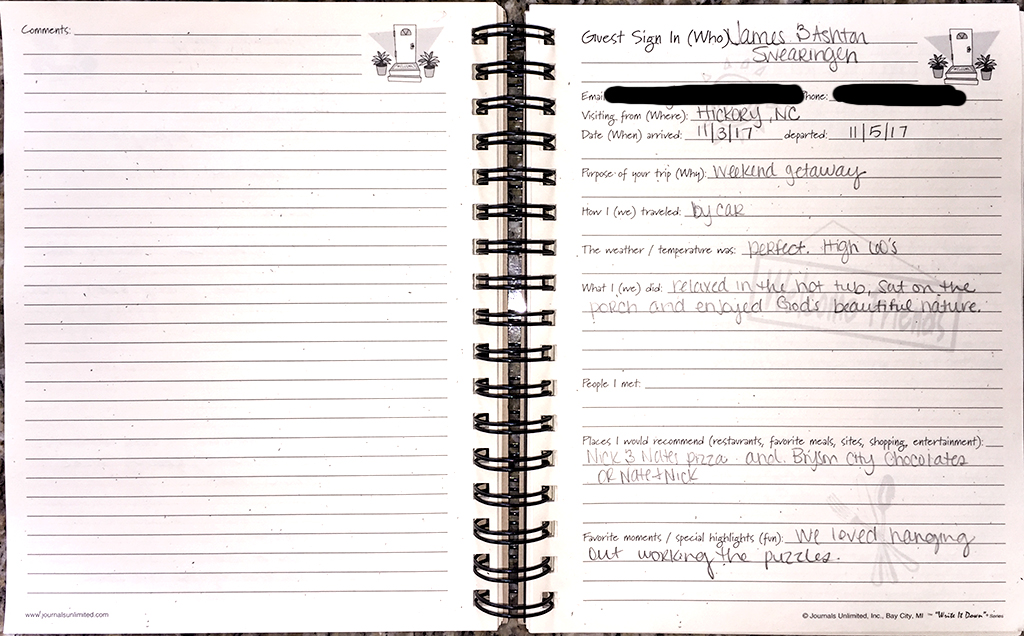 Comments:
www.journalsunlimited.com
Guest Sign In (Who) James & Ashton
Swearingen
Email Phone:
Visiting from (Where): Hickory, NC
Date (When) arrived: 11/3/17 departed: 11/5/17
Purpose of your trip (Why): weekend getaway
How I (we) traveled: by car
The weather / temperature was: perfect. High 60's
What I (we) did: relaxed in the hot tub, sat on the
porch and enjoyed God's beautiful nature.
Welcome Friends
People I met:
Places I would recommend (restaurants, favorite meals, sites, shopping, entertainment):
Nick & Nates pizza and Bryson City Chocolates
OR Nate + Nick
Favorite moments / special highlights (fun): We loved hanging
out working the puzzles.
© Journals Unlimited, Inc., Bay City, MI ~ "Write It Down" - Series